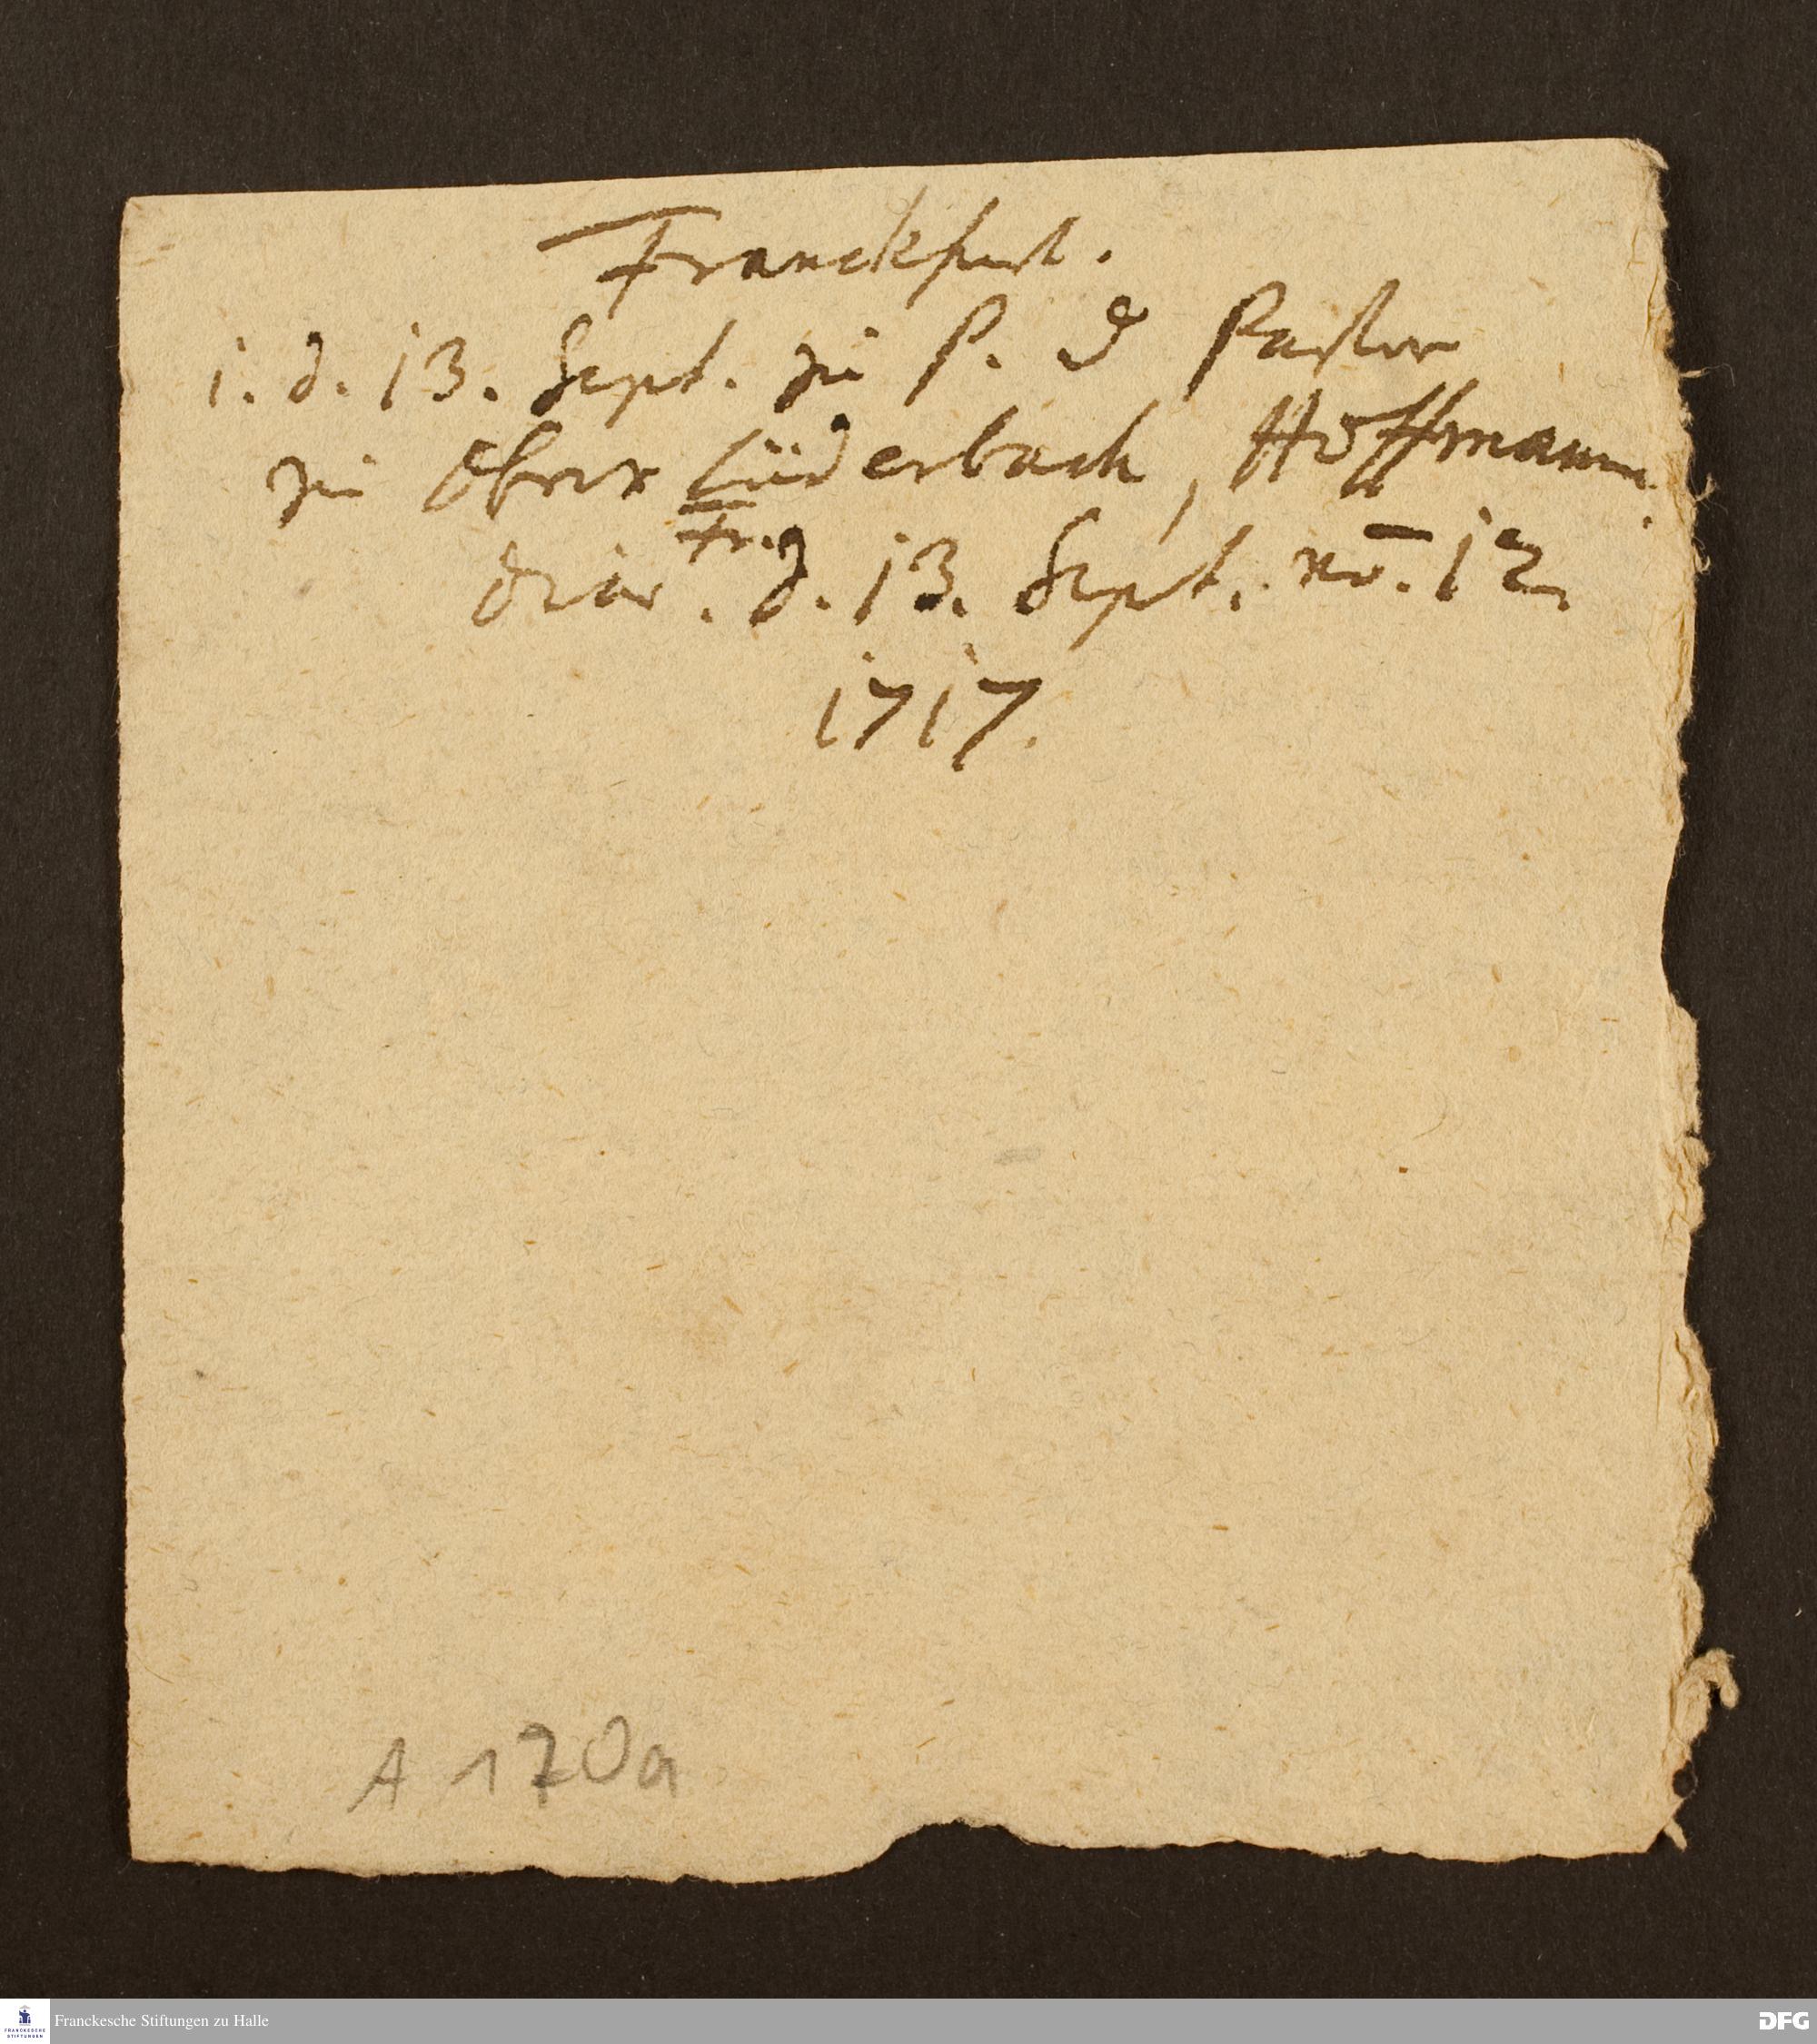 Franckfurt.
1. d. 13. Sept. zu P. d Pastor
zu Ober Lüderbach, Hoffmann.
Fr.
diar. d. 13. Sept. no. 12.
1717.
A 170a
Franckesche Stiftungen zu Halle
FRANCKESCHE
STIFTUNGEN
DFG